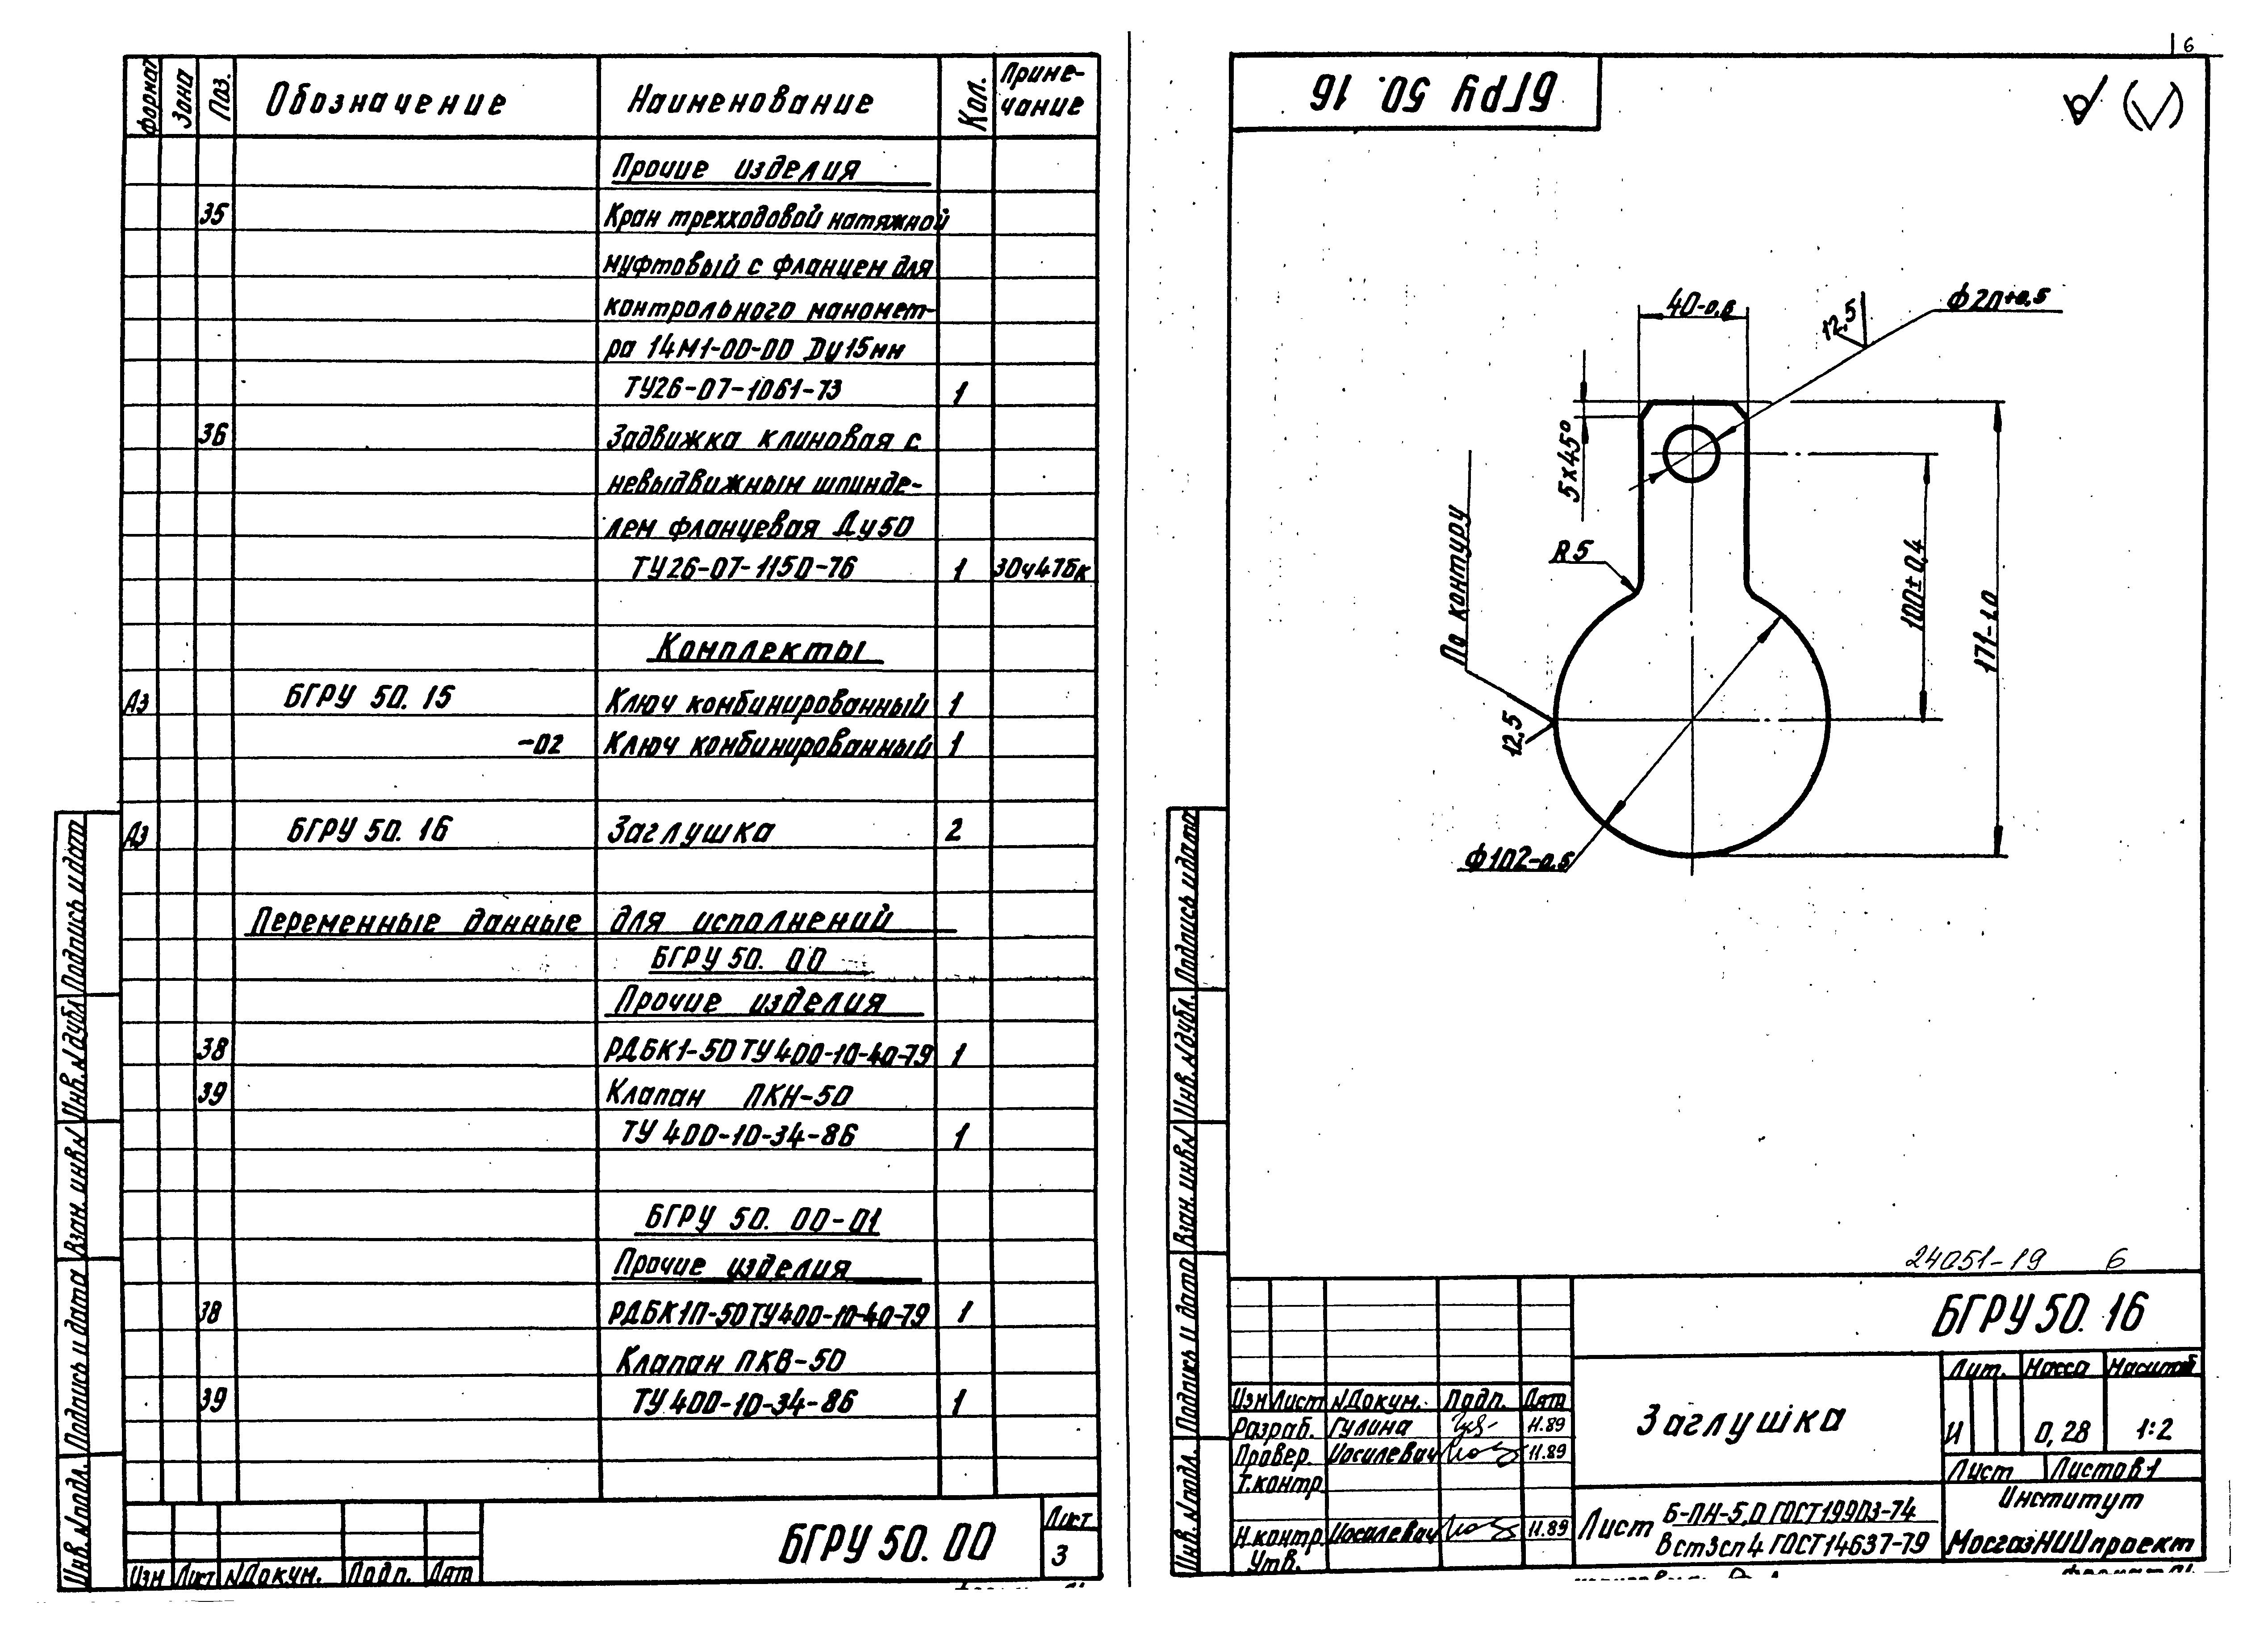 Формат Зона Поз. Обозначение Наименование Кол. Примечание
Прочие изделия
35 Кран трехходовой натяжной
муфтовый с фланцем для
контрольного маномет-
ра 14М1-00-00 Dу15мм
ТУ26-07-1061-73 1
36 Задвижка клиновая с
невыдвижным шпинде-
лем фланцевая Ду50
ТУ26-07-1150-76 1 30ч47бк
Комплекты
А3 БГРУ 50. 15 Ключ комбинированный 1
-02 Ключ комбинированный 1
А3 БГРУ 50. 16 Заглушка 2
Переменные данные для исполнений
БГРУ 50. 00
Прочие изделия
38 РДБК1-50 ТУ 400-10-40-79 1
39 Клапан ПКН-50
ТУ 400-10-34-86 1
БГРУ 50. 00-01
Прочие изделия
38 РДБК1П-50 ТУ400-10-40-79 1
Клапан ПКВ-50
39 ТУ 400-10-34-86 1
Подпись и дата
Инв. №дубл.
Взам. инв№
Подпись и дата
Инв. №подл.
Изм Лист №Докум. Подп. Дата
БГРУ 50. 00
Лист
3
6
БГРУ 50. 16
40-0,6
12,5
ф20+0,5
5х45°
R5
По контуру
12,5
100±0,4
171-1,0
ф102-0,5
24051-19 6
Подпись и дата
Инв. №дубл.
Взам. инв№
Подпись и дата
Инв. №подл.
БГРУ 50. 16
Изм Лист №Докум. Подп. Дата
Разраб. Гулина 11.89
Провер. Иосилевич 11.89
Т.контр
Н.контр. Иосилевич 11.89
Утв.
Заглушка
Лит. Масса Масштаб
И 0,28 1:2
Лист Листов 1
Лист Б-ПН-5,0 ГОСТ19903-74
Вст3сп4 ГОСТ14637-79
Институт
МосгазНИИпроект